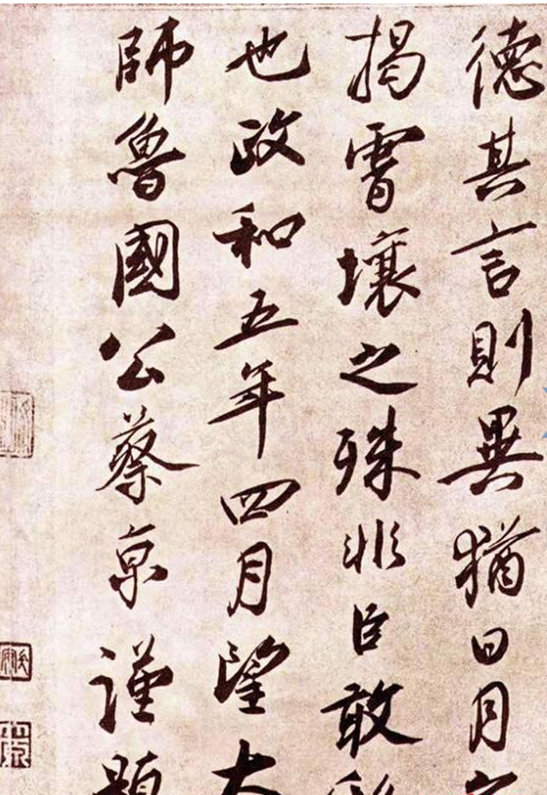 德其言則異猶日月
揭霄壤之殊非臣敢
也政和五年四月望大
師魯國公蔡京謹題